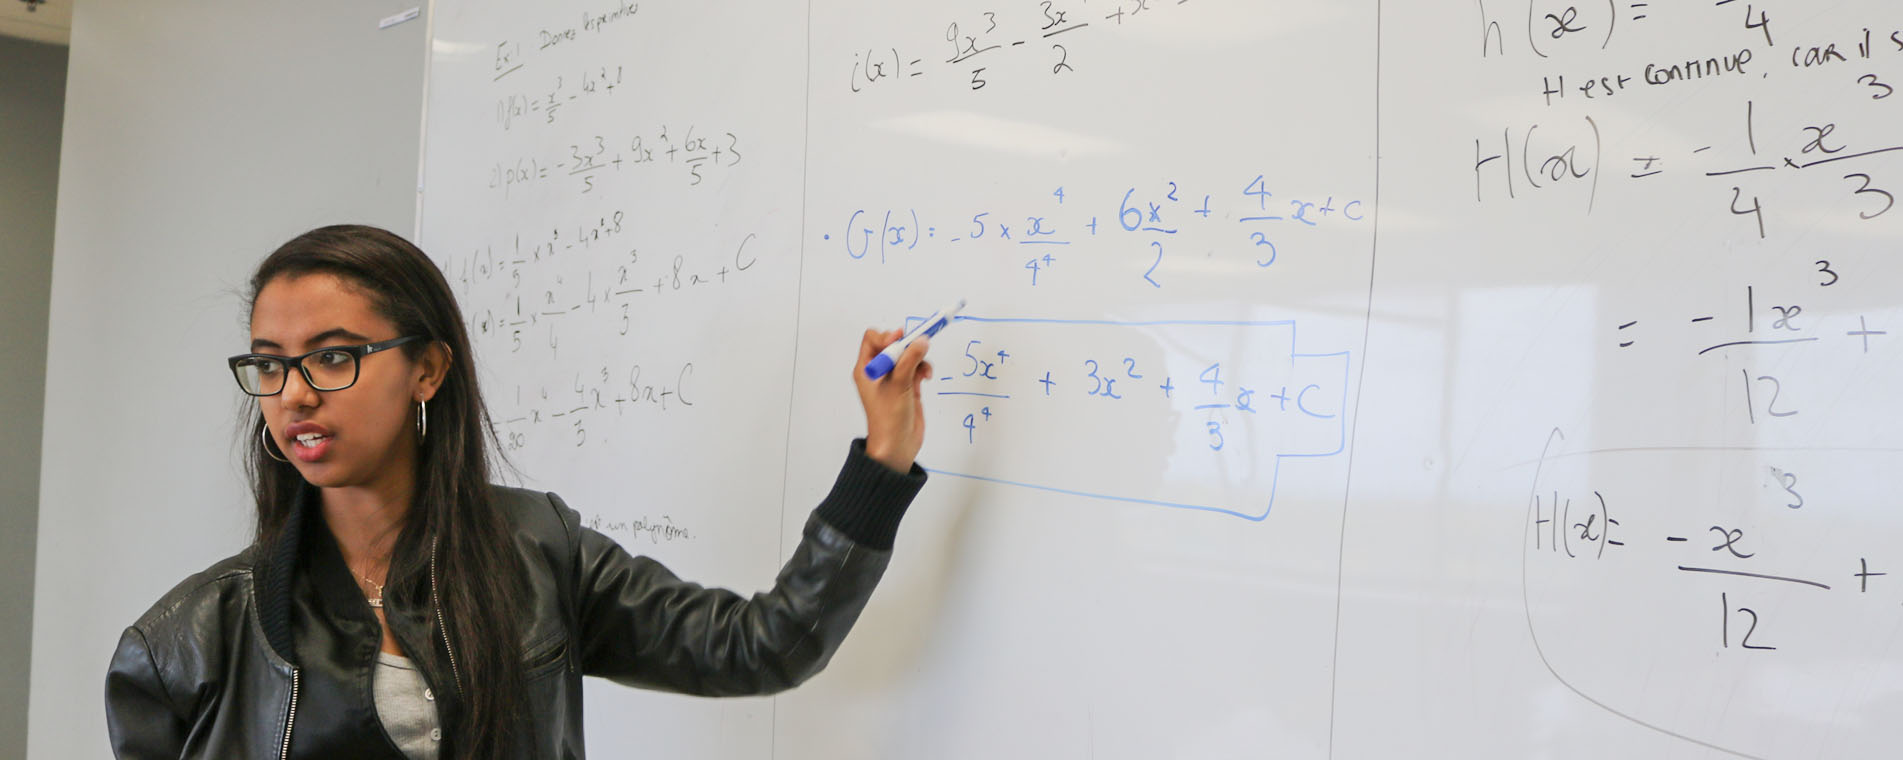 Ex:1 Donnez les primitives
1) f(x) = x³/5 - 4x² + 8
2) p(x) = - 3x³/5 + 9x² + 6x/5 + 3
f(x) = 1/5 × x³ - 4x² + 8
(x) = 1/5 × x⁴/4 - 4 × x³/3 + 8x + C
= 1/20 x⁴ - 4/3 x³ + 8x + C
est un polynôme.
i(x) = 9x³/5 - 3x/2 +
• G(x) = - 5 × x⁴/4⁴ + 6x²/2 + 4/3 x + c
- 5x⁴/4⁴ + 3x² + 4/3 x + C
h(x) = - /4
H est continue, car il s
H(x) = - 1/4 × x³/3
= - 1x³/12 +
H(x) = - x³/12 +